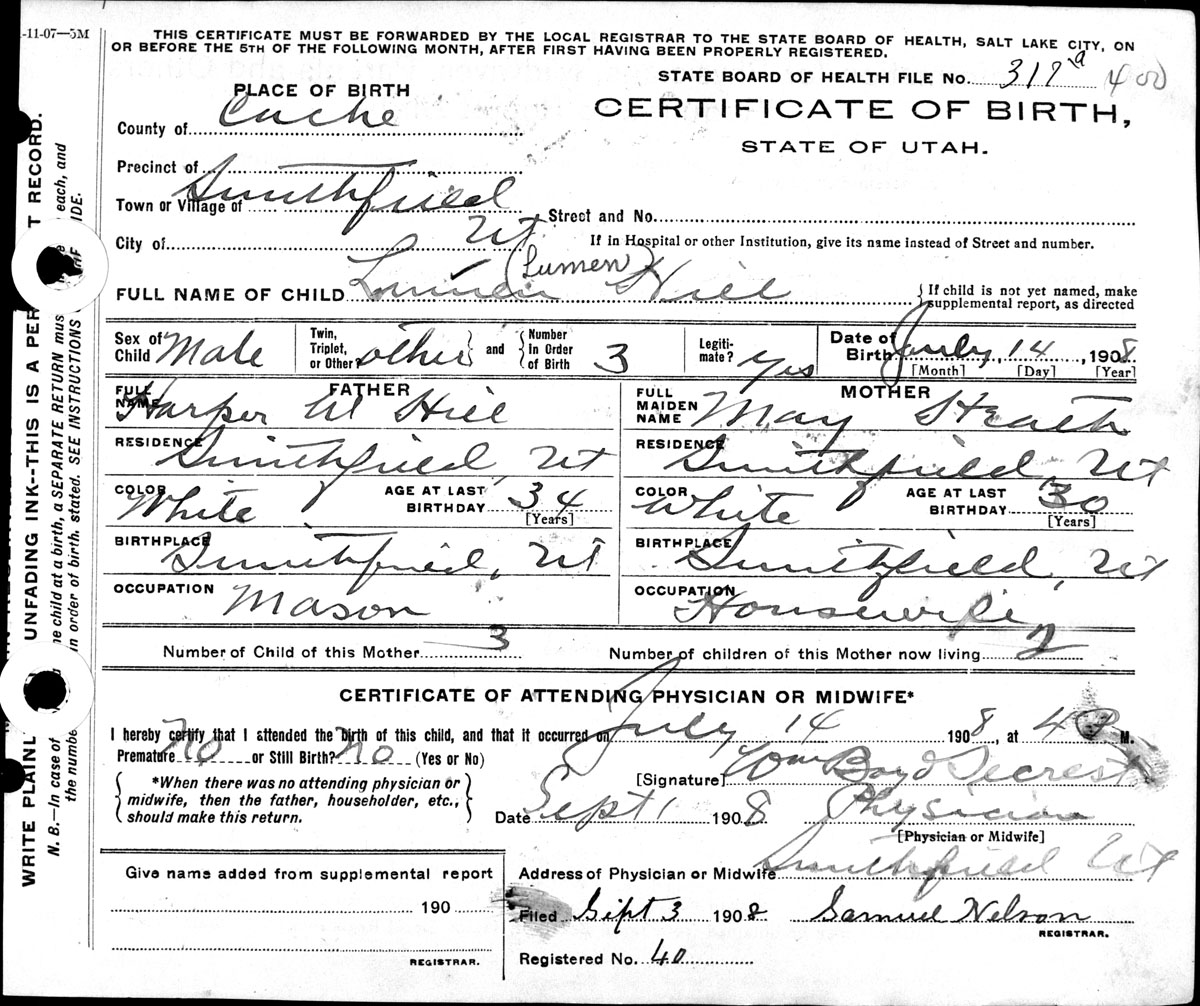 -11-07—5M
THIS CERTIFICATE MUST BE FORWARDED BY THE LOCAL REGISTRAR TO THE STATE BOARD OF HEALTH, SALT LAKE CITY, ON
OR BEFORE THE 5TH OF THE FOLLOWING MONTH, AFTER FIRST HAVING BEEN PROPERLY REGISTERED.
STATE BOARD OF HEALTH FILE No. 317 a 400
PLACE OF BIRTH
CERTIFICATE OF BIRTH,
STATE OF UTAH.
County of Cache
Precinct of
Town or Village of Smithfield
Street and No.
City of Ut
If in Hospital or other Institution, give its name instead of Street and number.
(Lumen)
FULL NAME OF CHILD Hill
If child is not yet named, make
supplemental report, as directed
Sex of Child Male
Twin, Triplet, or Other? other and Number In Order of Birth 3
Legiti-mate? Yes
Date of Birth July 14, 1908
[Month] [Day] [Year]
FATHER
FULL NAME Harper W Hill
RESIDENCE Smithfield, Ut
COLOR White AGE AT LAST BIRTHDAY 34
[Years]
BIRTHPLACE Smithfield, Ut
OCCUPATION Mason
MOTHER
FULL MAIDEN NAME May Heath
RESIDENCE Smithfield, Ut
COLOR White AGE AT LAST BIRTHDAY 30
[Years]
BIRTHPLACE Smithfield, Ut
OCCUPATION Housewife
Number of Child of this Mother 3 Number of children of this Mother now living 2
CERTIFICATE OF ATTENDING PHYSICIAN OR MIDWIFE*
I hereby certify that I attended the birth of this child, and that it occurred on July 14 1908, at 4 P M.
Premature No or Still Birth? No (Yes or No)
*When there was no attending physician or
midwife, then the father, householder, etc.,
should make this return.
[Signature] Wm Boyd Secrest
Date Sept 1 1908 Physician
[Physician or Midwife]
Give name added from supplemental report
Address of Physician or Midwife Smithfield Ut
190
Filed Sept 3 1908 Samuel Nelson
REGISTRAR.
REGISTRAR.
Registered No. 40
WRITE PLAINL UNFADING INK--THIS IS A PER T RECORD.
N. B.—In case of ne child at a birth, a SEPARATE RETURN mus each, and
the numbe in order of birth. stated. SEE INSTRUCTIONS OF IDE.